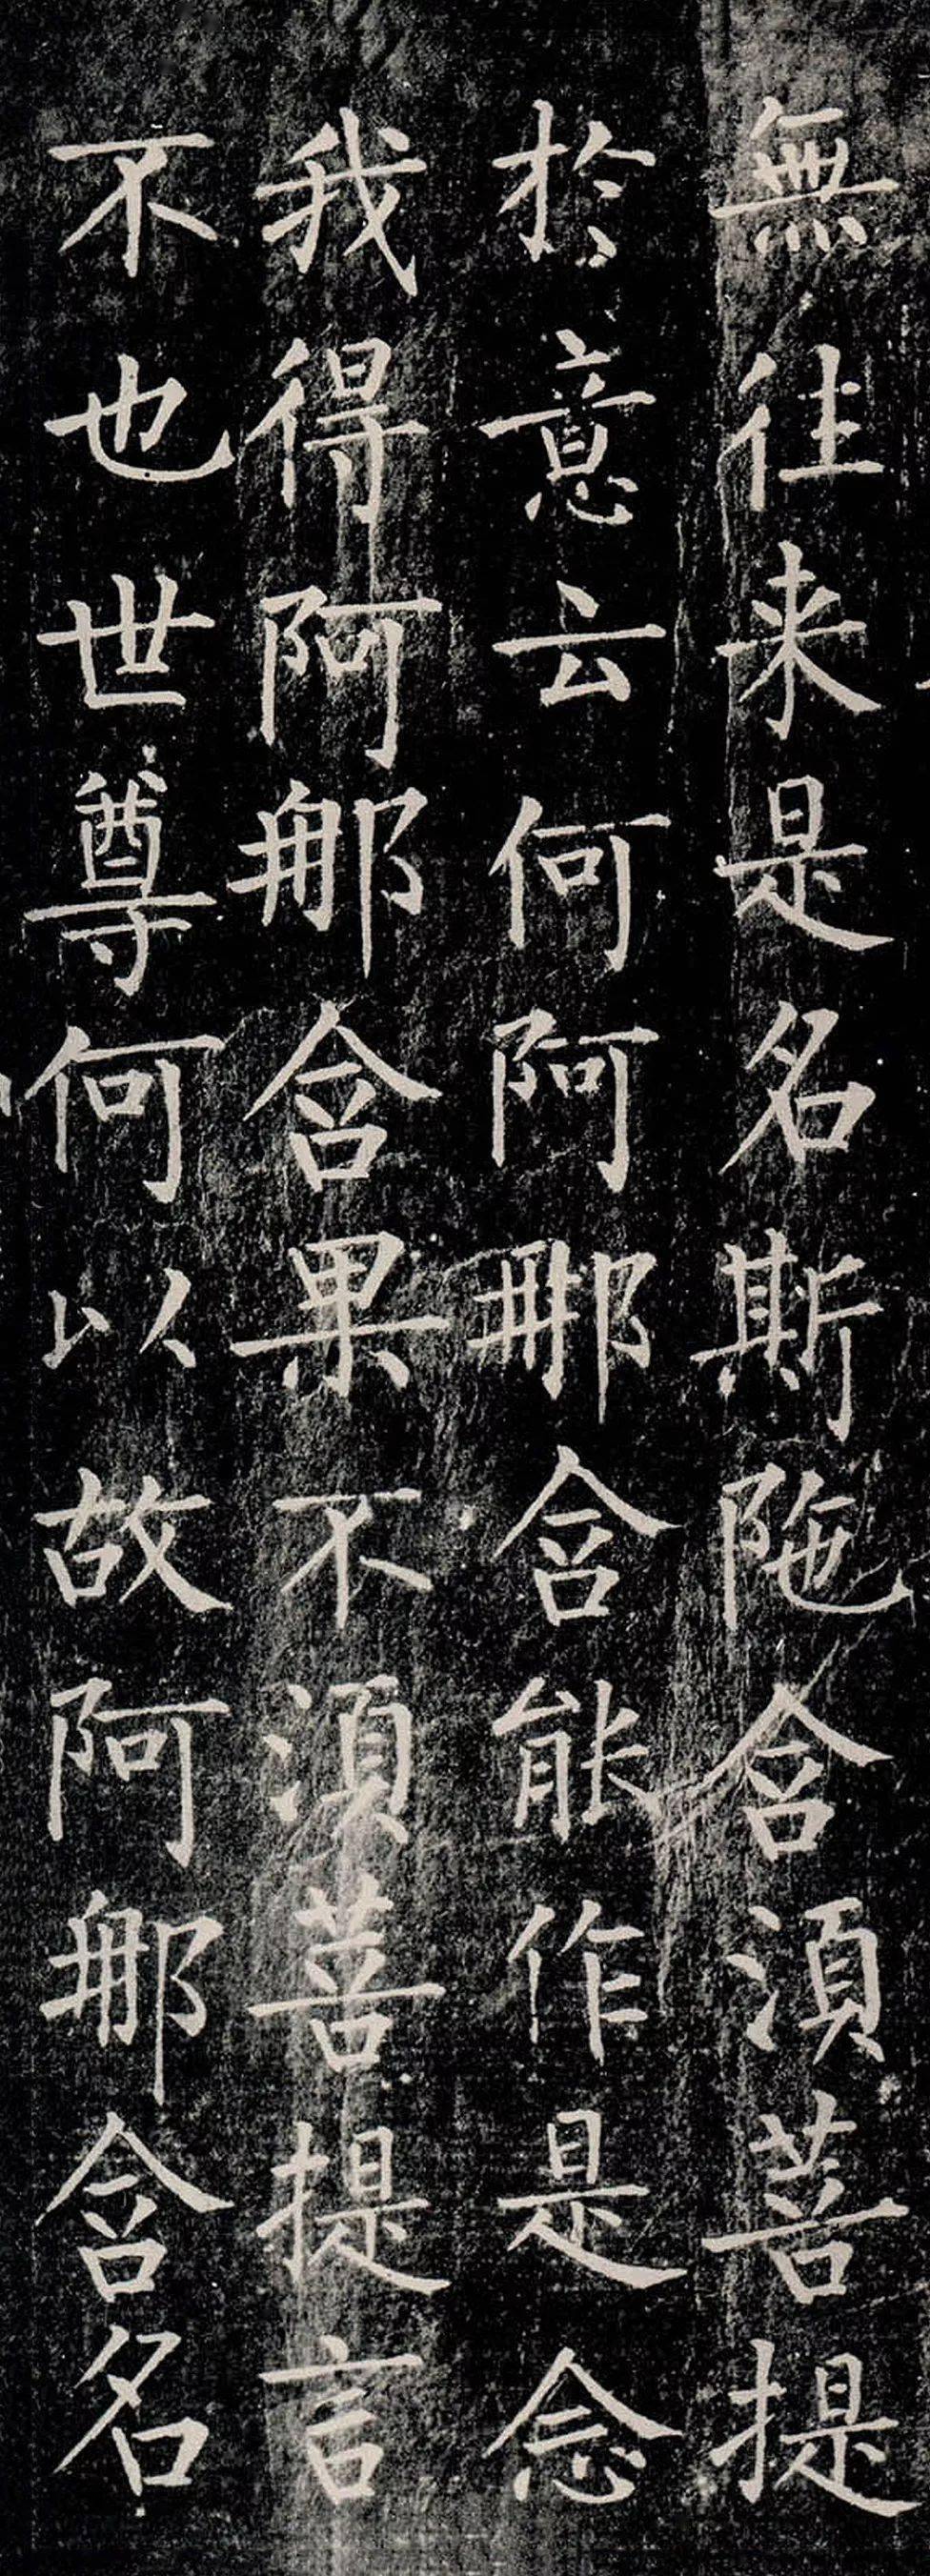 無往来是名斯陁含湏菩提
於意云何阿那含能作是念
我得阿那含果不湏菩提言
不也世尊何以故阿那含名